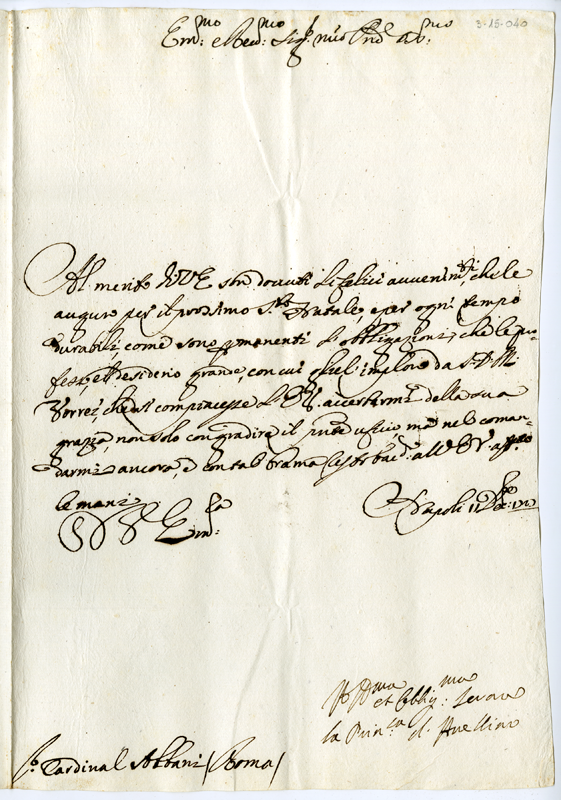 3-15-040
Em.mo e Rev.mo Sig.r mio P.ron Col.mo
Al merito di V.E. son dovuti li felici avvenim.ti, che le
auguro per il prossimo S.to Natale, e per ogni tempo
durabili, come sono permanenti le obbligazioni, che le pro-
fesso, et il desiderio grande, con cui gliel' imploro da S.D.M.
Vorrei, che si compiacesse l'E.V. accertarmi della sua
grazia, non solo con gradire il pnte ufficio ma nel coman-
darmi ancora, e con tal brama resto bac.do all' E.V. aff.te
le mani
Napoli 11 X.bre
V. Em.za
Div.ma et Obblig.ma Serva
la Prin.sa d'Avellino
S.r Cardinal Albani (Roma)